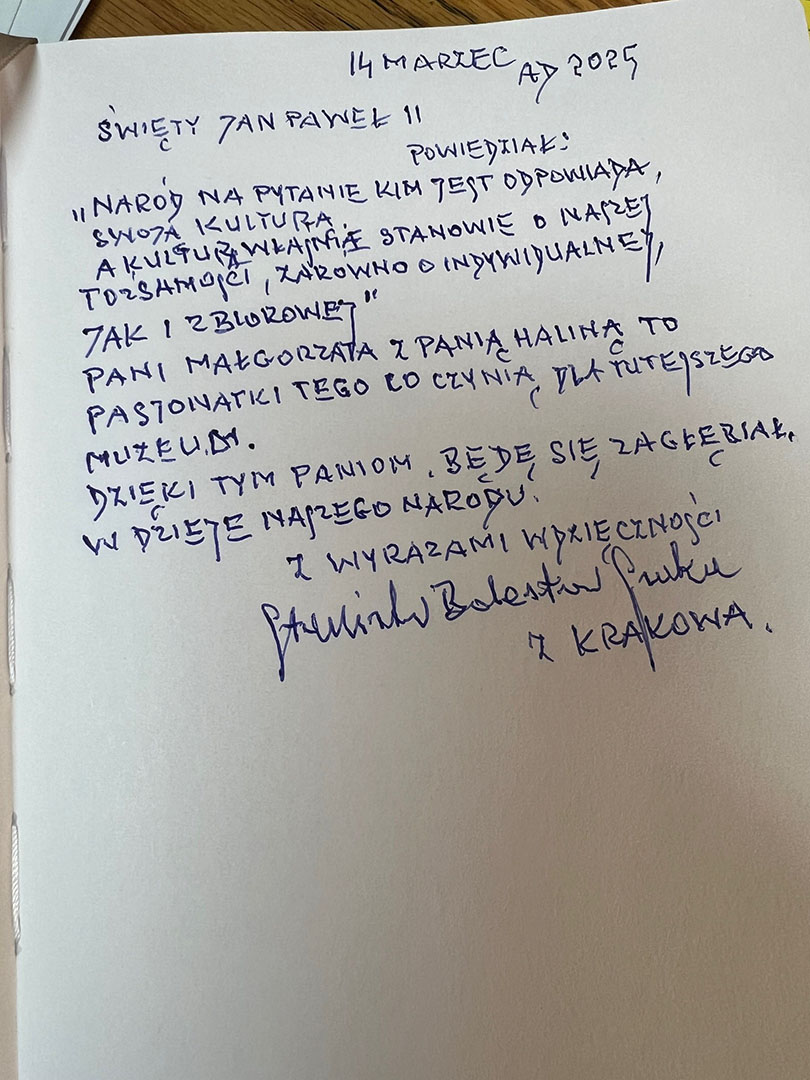 14 MARZEC AD 2025
ŚWIĘTY JAN PAWEŁ II
POWIEDZIAŁ:
"NARÓD NA PYTANIE KIM JEST ODPOWIADA,
SWOJĄ KULTURĄ.
A KULTURA WŁAŚNIE STANOWIE O NASZEJ
TOŻSAMOŚCI, ZARÓWNO O INDYWIDUALNEJ,
JAK I ZBIOROWEJ"
PANI MAŁGORZATA Z PANIĄ HALINĄ TO
PASJONATKI TEGO CO CZYNIĄ DLA TUTEJSZEGO
MUZEUM.
DZIĘKI TYM PANIOM, BĘDĘ SIĘ ZAGŁĘBIAŁ,
W DZIEJE NASZEGO NARODU.
Z WYRAZAMI WDZIĘCZNOŚCI
Bolesław
Z KRAKOWA.